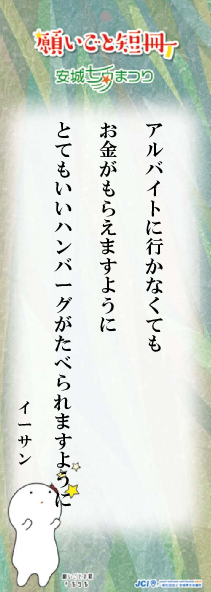 願いごと短冊
安城七夕まつり
アルバイトに行かなくても
お金がもらえますように
とてもいいハンバーグがたべられますように
イーサン
JCI